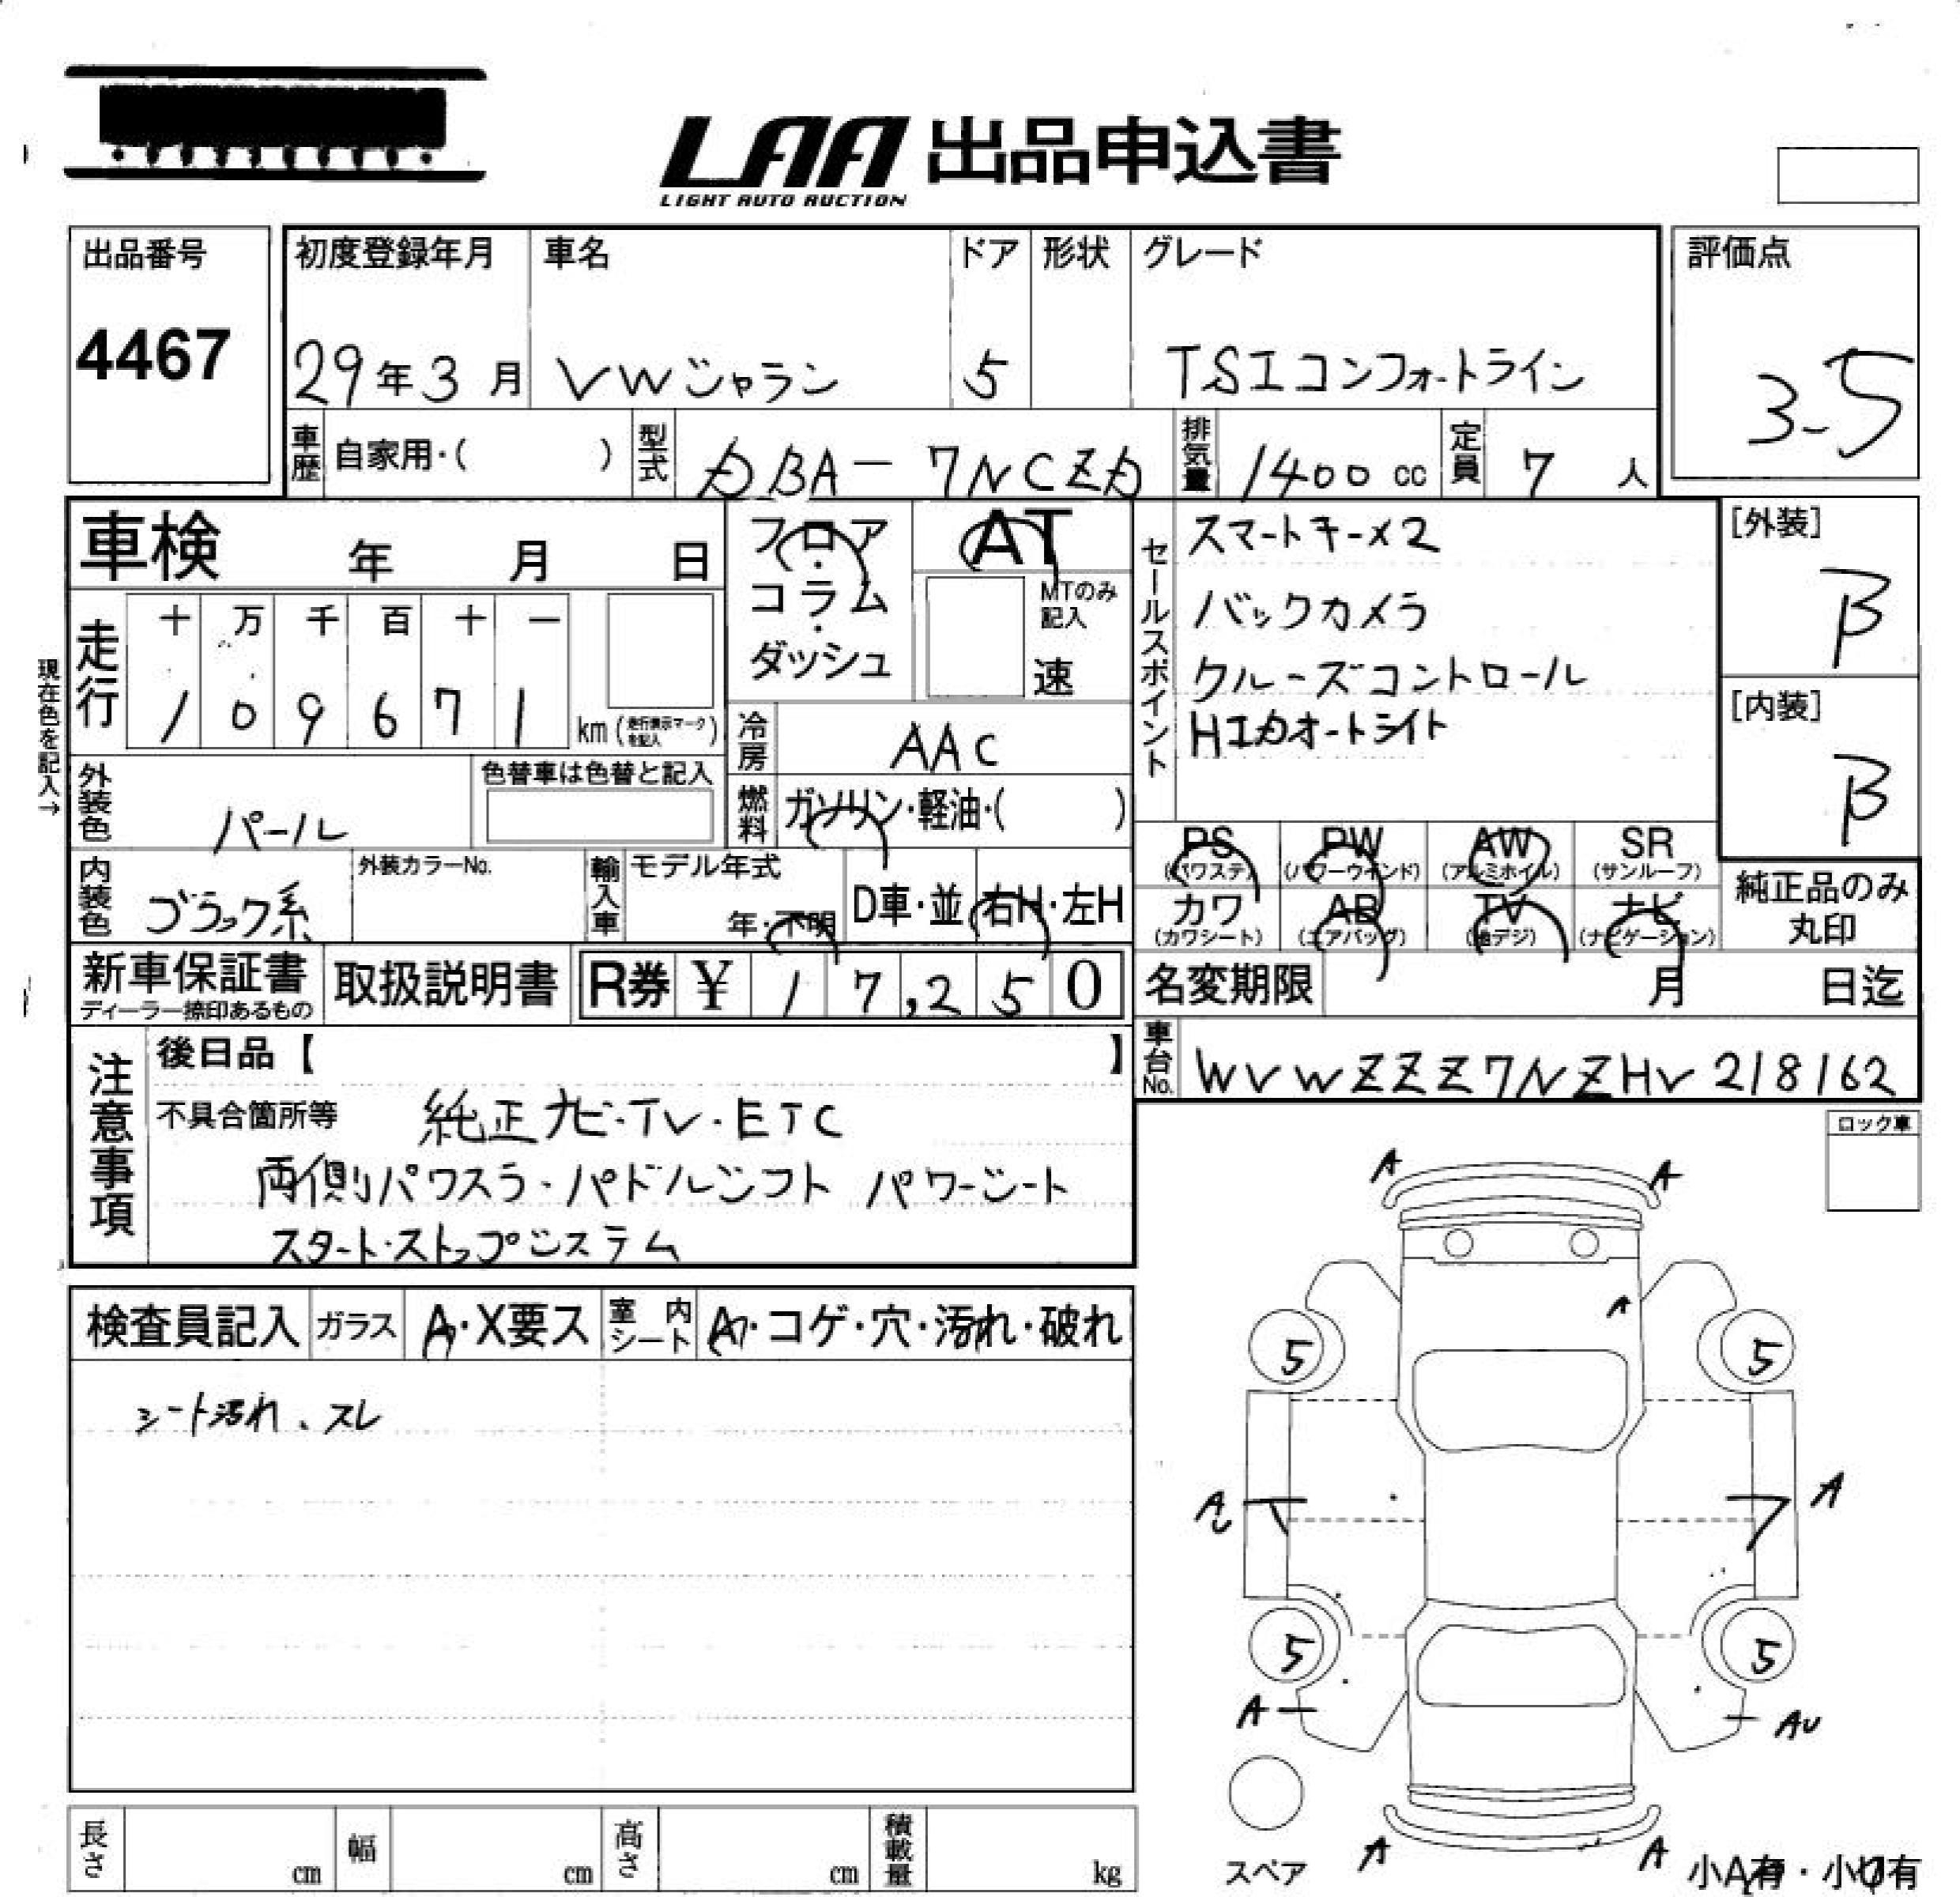 LAA 出品申込書
LIGHT AUTO AUCTION
出品番号
4467
初度登録年月 車名 ドア 形状 グレード
29年3月 VWシャラン 5 TSIコンフォートライン
評価点
3.5
車歴 自家用・( ) 型式 DBA-7NCZD 排気量 1400cc 定員 7人
車検 年 月 日
フロア・コラム・ダッシュ
AT
MTのみ記入
速
セールスポイント
スマートキー×2
バックカメラ
クルーズコントロール
HIDオートライト
[外装]
B
[内装]
B
現在色を記入→
走行 十 万 千 百 十 一
1 0 9 6 7 1 km(走行表示マークを記入)
冷房 AAC
外装色 パール 色替車は色替と記入
燃料 ガソリン・軽油・( )
内装色 ブラック系 外装カラーNo. 輸入車 モデル年式 年・不明 D車・並 右H・左H
PS PW AW SR
(パワステ) (パワーウインド) (アルミホイル) (サンルーフ)
カワ AB TV ナビ
(カワシート) (エアバッグ) (地デジ) (ナビゲーション)
純正品のみ丸印
新車保証書 取扱説明書 R券 ¥ 17,250
ディーラー捺印あるもの
名変期限 月 日迄
車台No. WVWZZZ7NZHV218162
注意事項
後日品【 】
不具合箇所等 純正ナビ・TV・ETC
両側パワスラ・パドルシフト パワーシート
スタート・ストップシステム
ロック車
検査員記入 ガラス A・X要ス 室内シート A・コゲ・穴・汚れ・破れ
シート汚れ、スレ
A A
A
5 5
A A
5 5
A AU
A A
スペア
小A有・小U有
長さ cm 幅 cm 高さ cm 積載量 kg